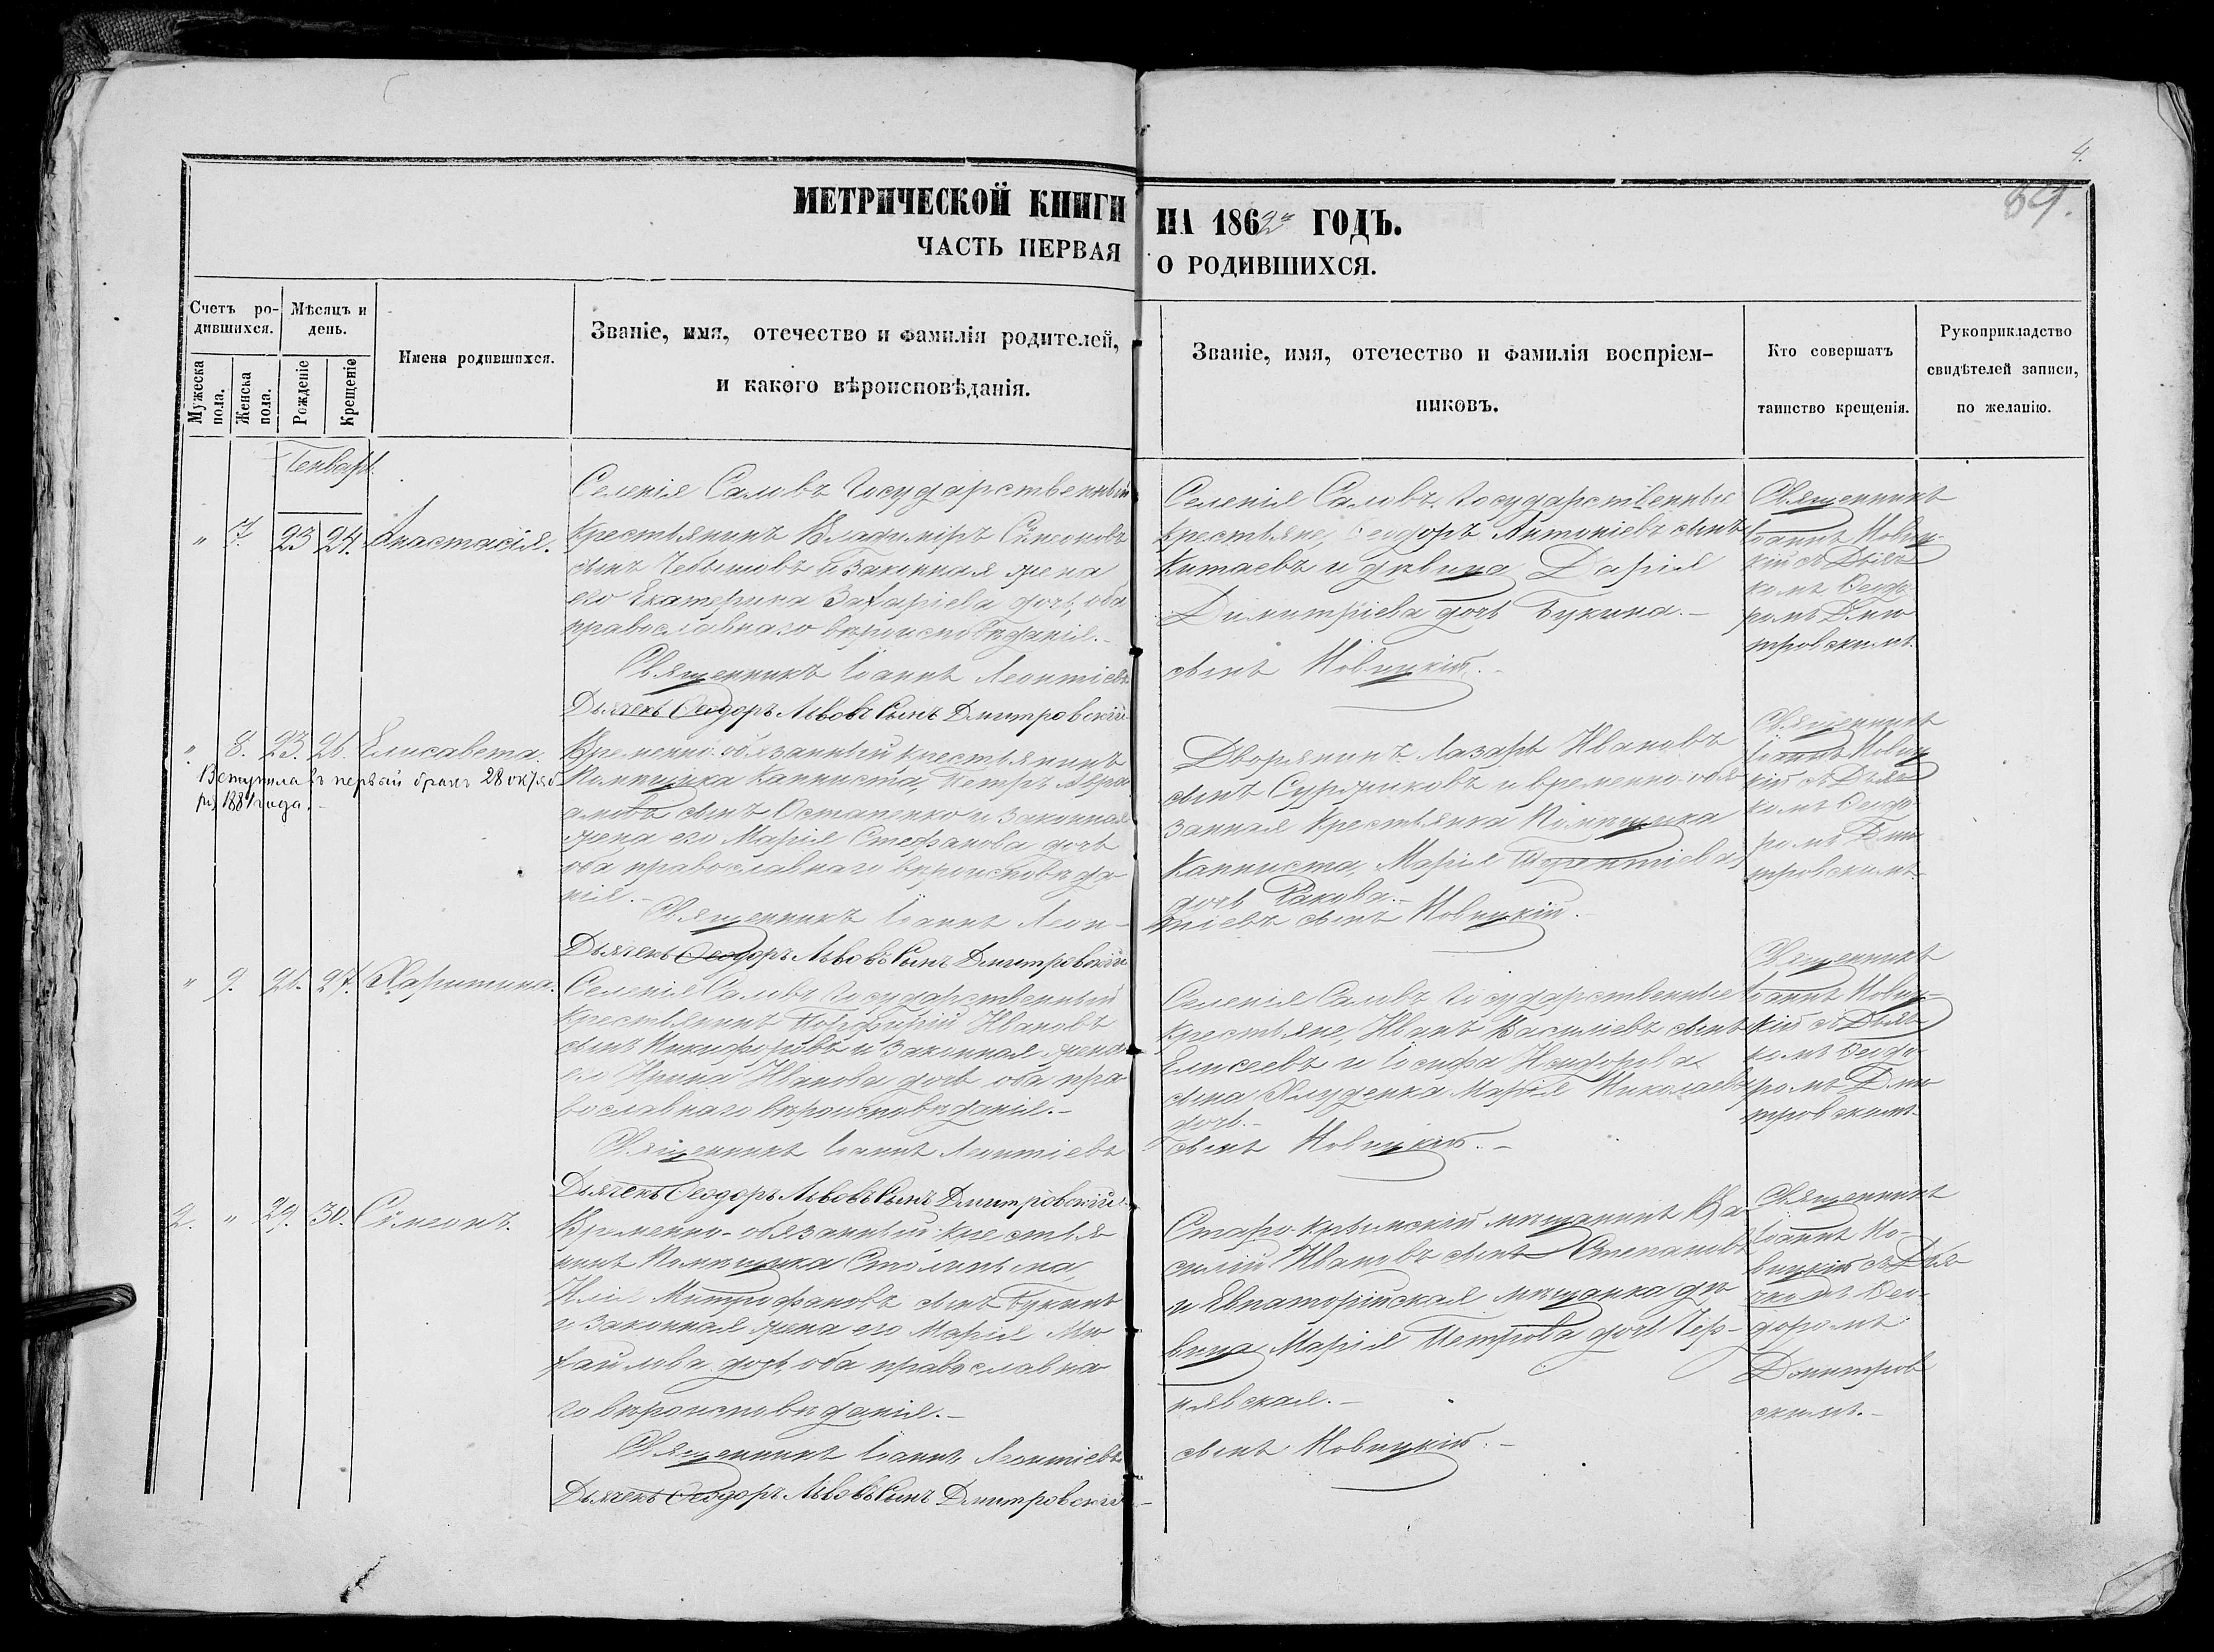 4.
89.
МЕТРИЧЕСКОЙ КНИГИ НА 1862й ГОДЪ.
ЧАСТЬ ПЕРВАЯ О РОДИВШИХСЯ.
Счетъ ро-
дившихся.
Мужеска пола.
Женска пола.
Мѣсяцъ и
день.
Рожденіе
Крещеніе
Имена родившихся.
Званіе, имя, отечество и фамилія родителей,
и какого вѣроисповѣданія.
Званіе, имя, отечество и фамилія воспріем-
никовъ.
Кто совершатъ
таинство крещенія.
Рукоприкладство
свидѣтелей записи,
по желанію.
Генварь
„ 7. 23 24. Анастасія.
Селенія Саловъ Государственный
крестьянинъ Владиміръ Сѵмеоновъ
сынъ и законная жена
его Екатерина Захаріева дочь, оба
православнаго вѣроисповѣданія.-
Священникъ Іоаннъ Леонтіевъ
Дьячекъ Ѳеодоръ Львовъ Сынъ Дмитровскій
Селенія Саловъ, Государственные
крестьяне, Ѳеодоръ Антоніевъ сынъ
Китаевъ и дѣвица Дарія
Димитріева дочь Букина.-
сынъ Новицкій.-
Священникъ
Іоаннъ Новиц-
кій съ Дьяч-
комъ Ѳеодо-
ромъ Дми-
тровскимъ.
„ 8. 23. 26. Елисавета.
Вступила въ первый бракъ 28 октяб
ря 1881 года.
Временно-обязанный крестьянинъ
Помѣщика Капниста, Петръ Авра-
амовъ сынъ Остапенко и законная
жена его Марія Стефанова дочь
оба православнаго вѣроисповѣда-
нія.-
Священникъ Іоаннъ Леон-
Дьячекъ Ѳеодоръ Львовъ Сынъ Дмитровскій
Дворянинъ Лазарь Ивановъ
сынъ и временно-обя-
занная крестьянка Помѣщика
Капниста, Марія Терентіева
дочь Ракова.-
тіевъ сынъ Новицкій.
Священникъ
Іоаннъ Новиц-
кій съ Дьяч-
комъ Ѳеодо-
ромъ Дми-
тровскимъ.
„ 9. 26. 27. Харитина.
Селенія Саловъ Государственный
крестьянинъ Порфирій Ивановъ
сынъ Никифоровъ и законная жена
его Ирина Иванова дочь оба пра-
вославнаго вѣроисповѣданія.-
Священникъ Іоаннъ Леонтіевъ
Дьячекъ Ѳеодоръ Львовъ Сынъ Дмитровскій
Селенія Саловъ Государственные
крестьяне, Иванъ Василіевъ сынъ
Елисеевъ и Іосифа
сына Марія Николаева
дочь.-
сынъ Новицкій.-
Священникъ
Іоаннъ Новиц-
кій съ Дьяч-
комъ Ѳеодо-
ромъ Дми-
тровскимъ.
2. „ 29. 30. Сѵмеонъ.
Временно-обязанный крестья-
нинъ Помѣщика
Илія Митрофановъ сынъ Букинъ
и законная жена его Марія Ми-
хайлова дочь, оба православна-
го вѣроисповѣданія.-
Священникъ Іоаннъ Леонтіевъ
Дьячекъ Ѳеодоръ Львовъ Сынъ Дмитровскій
Старо-крымскій мѣщанинъ Ва-
силій Ивановъ сынъ Степановъ
и Евпаторійская мѣщанка дѣ-
вица Марія Петрова дочь Чер-
нявская.-
сынъ Новицкій.-
Священникъ
Іоаннъ Но-
вицкій съ Дья-
чкомъ Ѳео-
доромъ
Дмитров-
скимъ.-